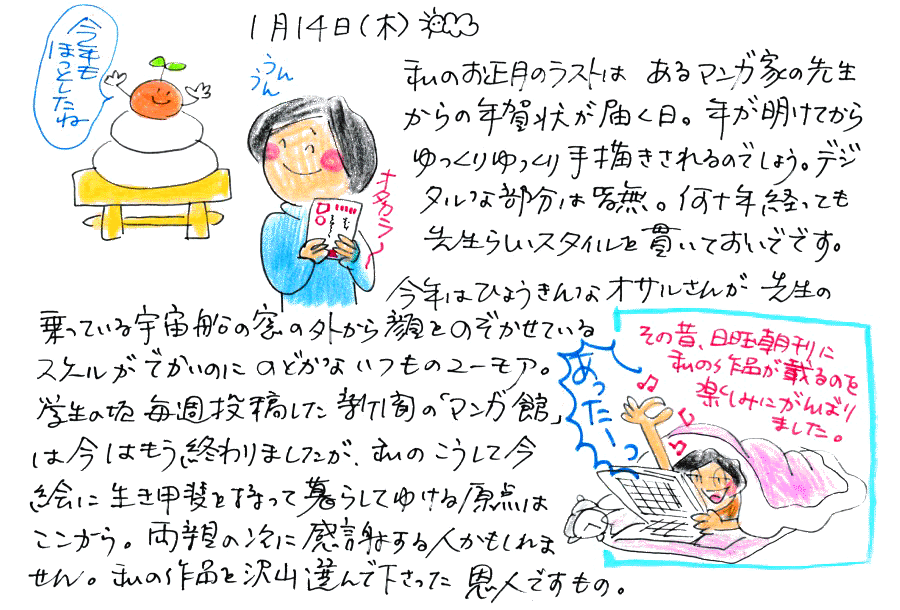 1月14日(木)
今年も
ほっとしたね
うん
うん
オタカラ〜
私のお正月のラストは あるマンガ家の先生
からの年賀状が届く日。年が明けてから
ゆっくりゆっくり手描きされるのでしょう。デジ
タルな部分は皆無。何十年経っても
先生らしいスタイルを貫いておいでです。
今年はひょうきんなオサルさんが 先生の
乗っている宇宙船の窓の外から顔をのぞかせている
スケールがでかいのに のどかな いつものユーモア。
学生の頃 毎週投稿した 新聞の「マンガ館」
は今はもう終わりましたが、私のこうして今
絵に生き甲斐を持って暮らしてゆける原点は
ここから。両親の次に感謝する人かもしれま
せん。私の作品を沢山選んで下さった 恩人ですもの。
その昔、日曜朝刊に
私の作品が載るのを
楽しみにがんばり
ました。
あったーっ